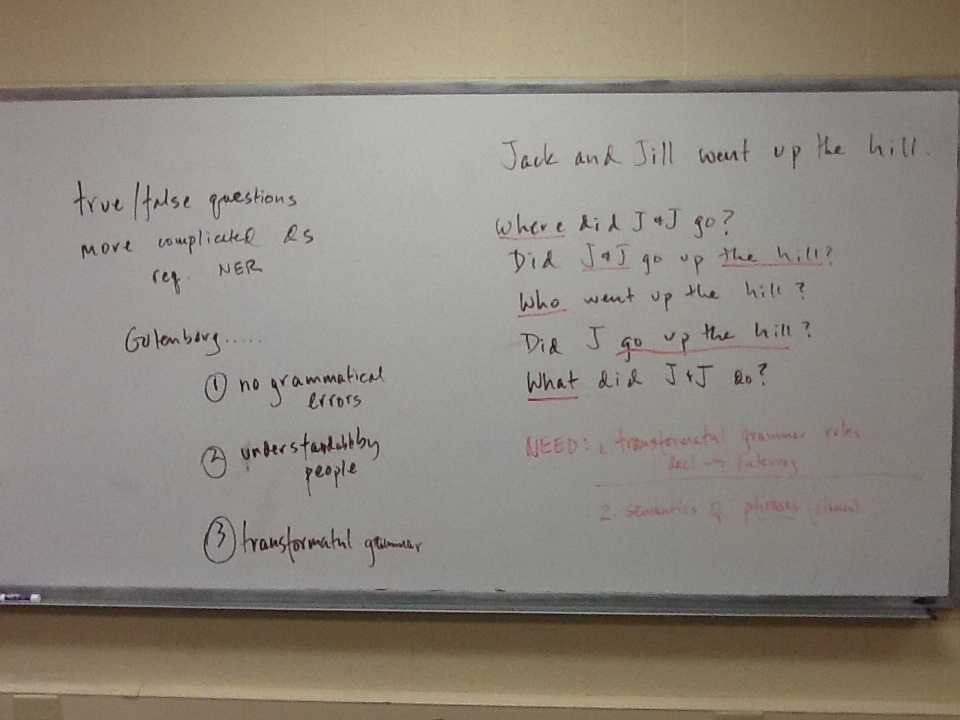 true/false questions
more complicated Qs
req. NER
Gutenberg.....
① no grammatical
errors
② understandable by
people
③ transformatnl grammar
Jack and Jill went up the hill.
Where did J & J go?
Did J & J go up the hill?
Who went up the hill?
Did J go up the hill?
What did J & J do?
NEED: transformatnl grammar rules
decl → interrog
2 semantics of phrases